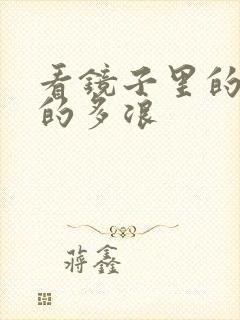 看镜子里的
的多浪
蒋鑫